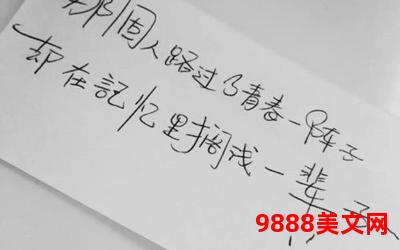 那個人路过了青春一阵子
却在記忆里搁浅一辈子
9888美文网